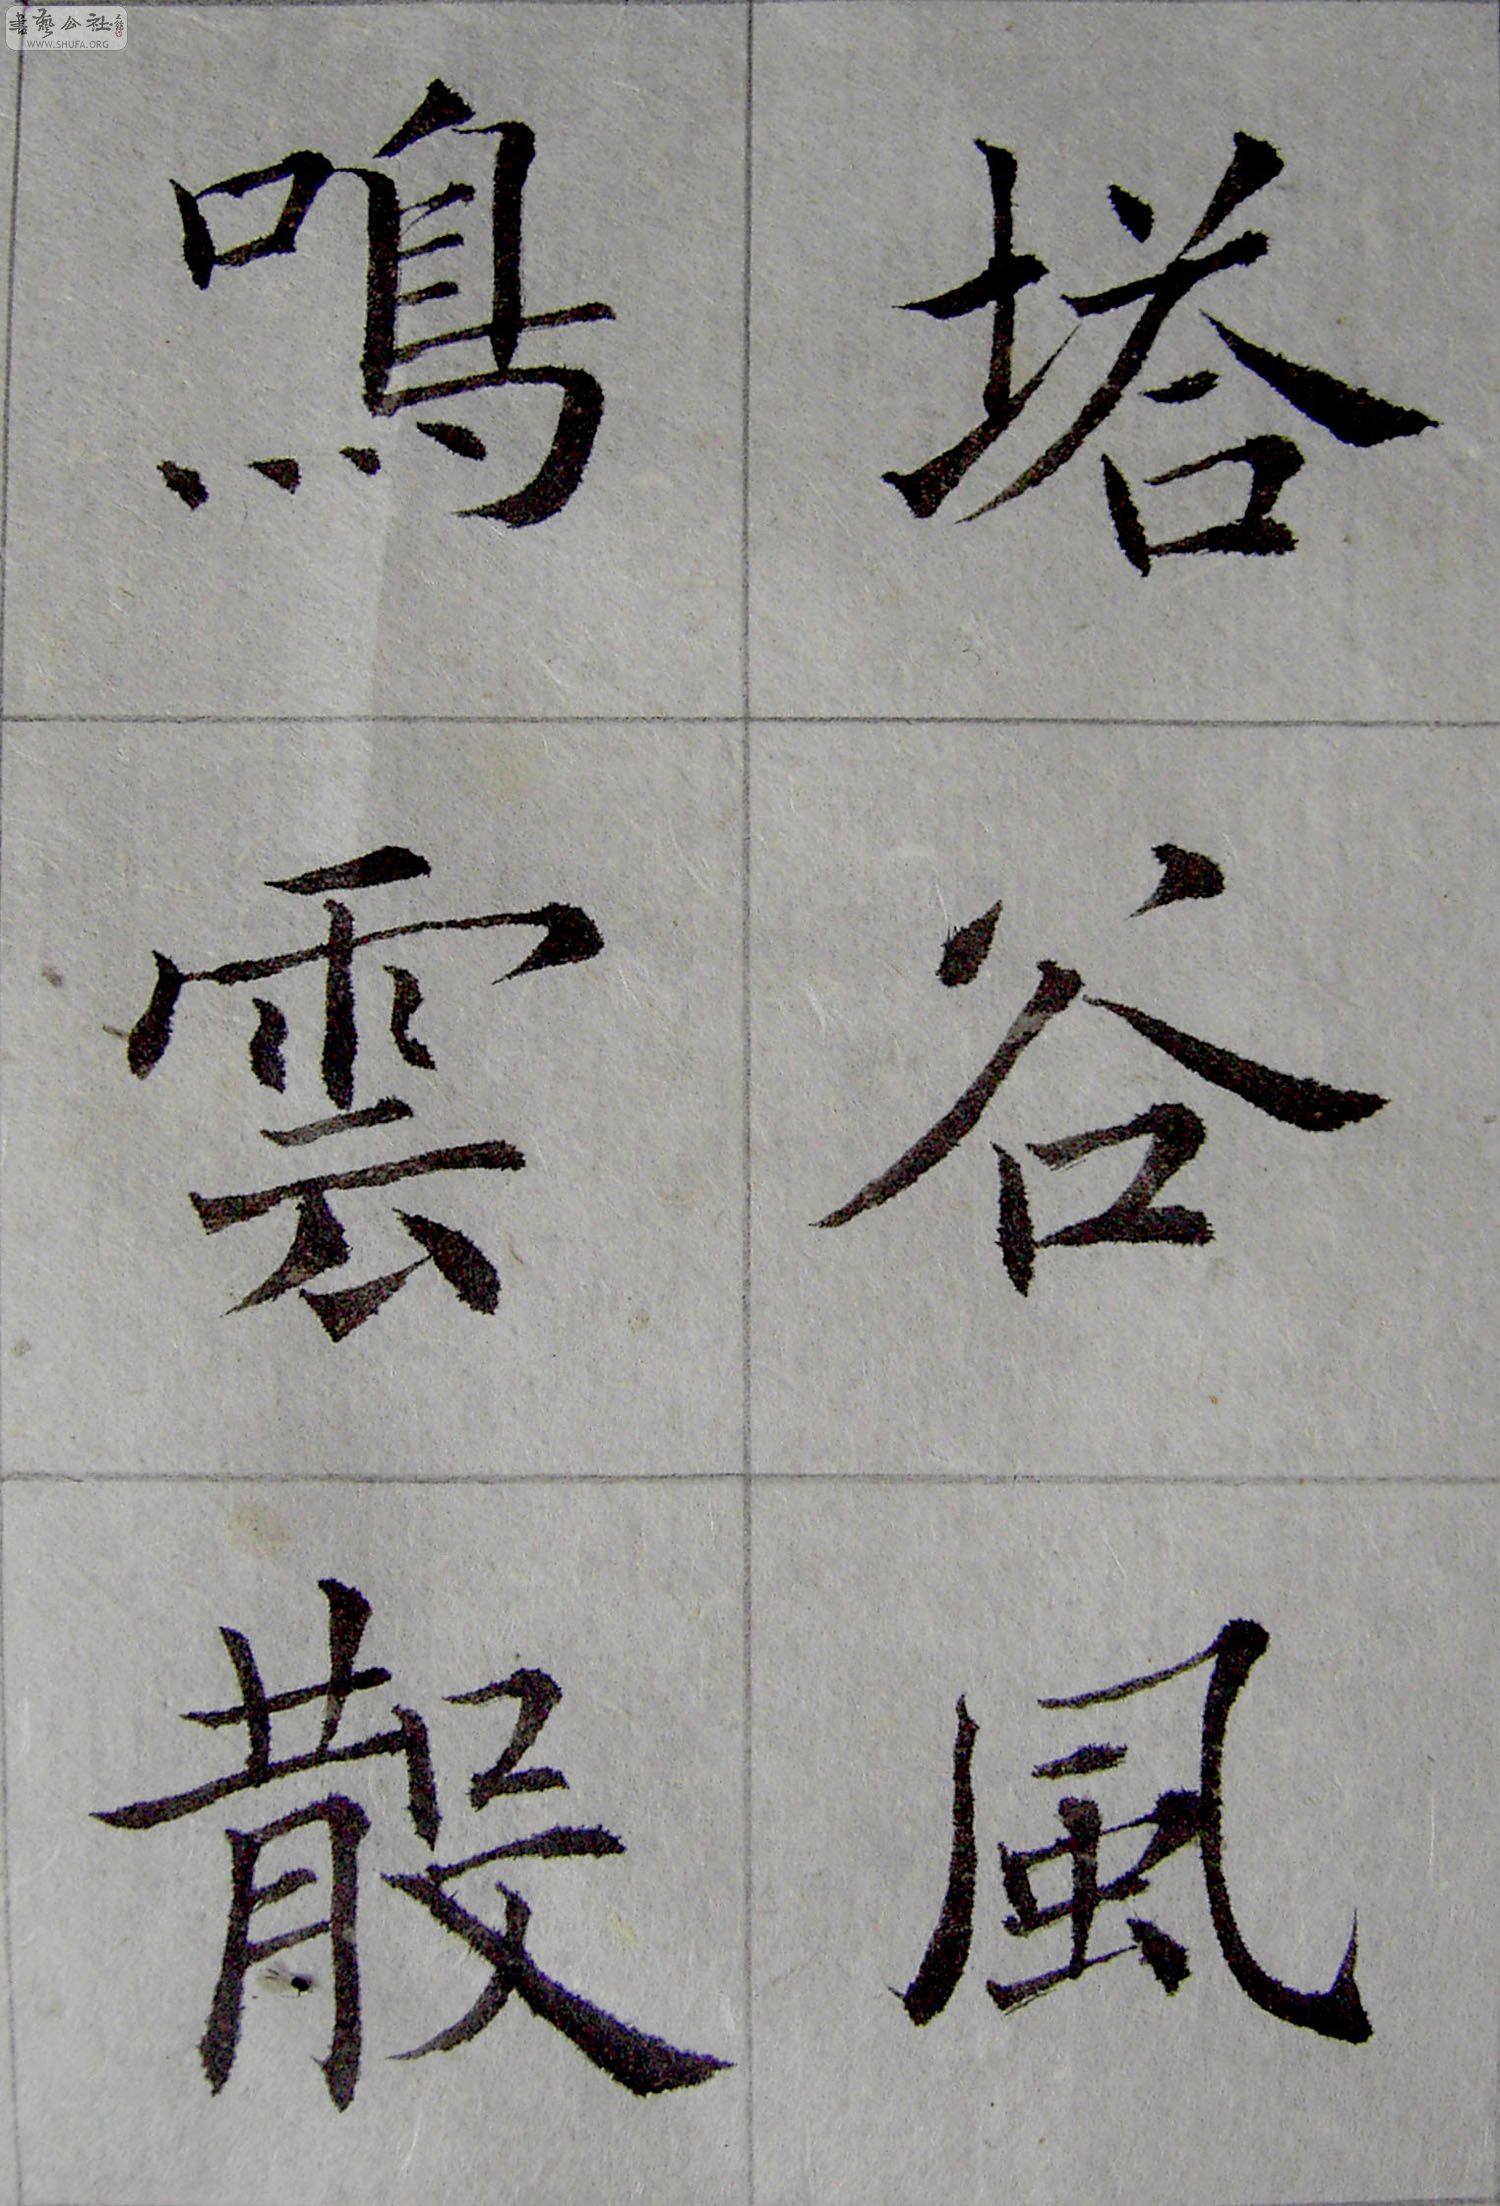 塔谷風
鳴雲散
書藝公社
WWW.SHUFA.ORG